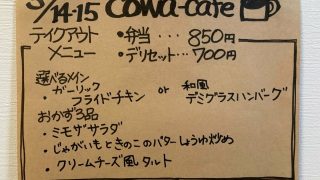 3/14-15 cowa-cafe
テイクアウト メニュー
・弁当 ・・・ 850円
・デリセット・・・700円
選べるメイン
ガーリックフライドチキン or 和風デミグラスハンバーグ
おかず3品
・ミモザサラダ
・じゃがいもときのこのバターしょうゆ炒め
・クリームチーズ風タルト